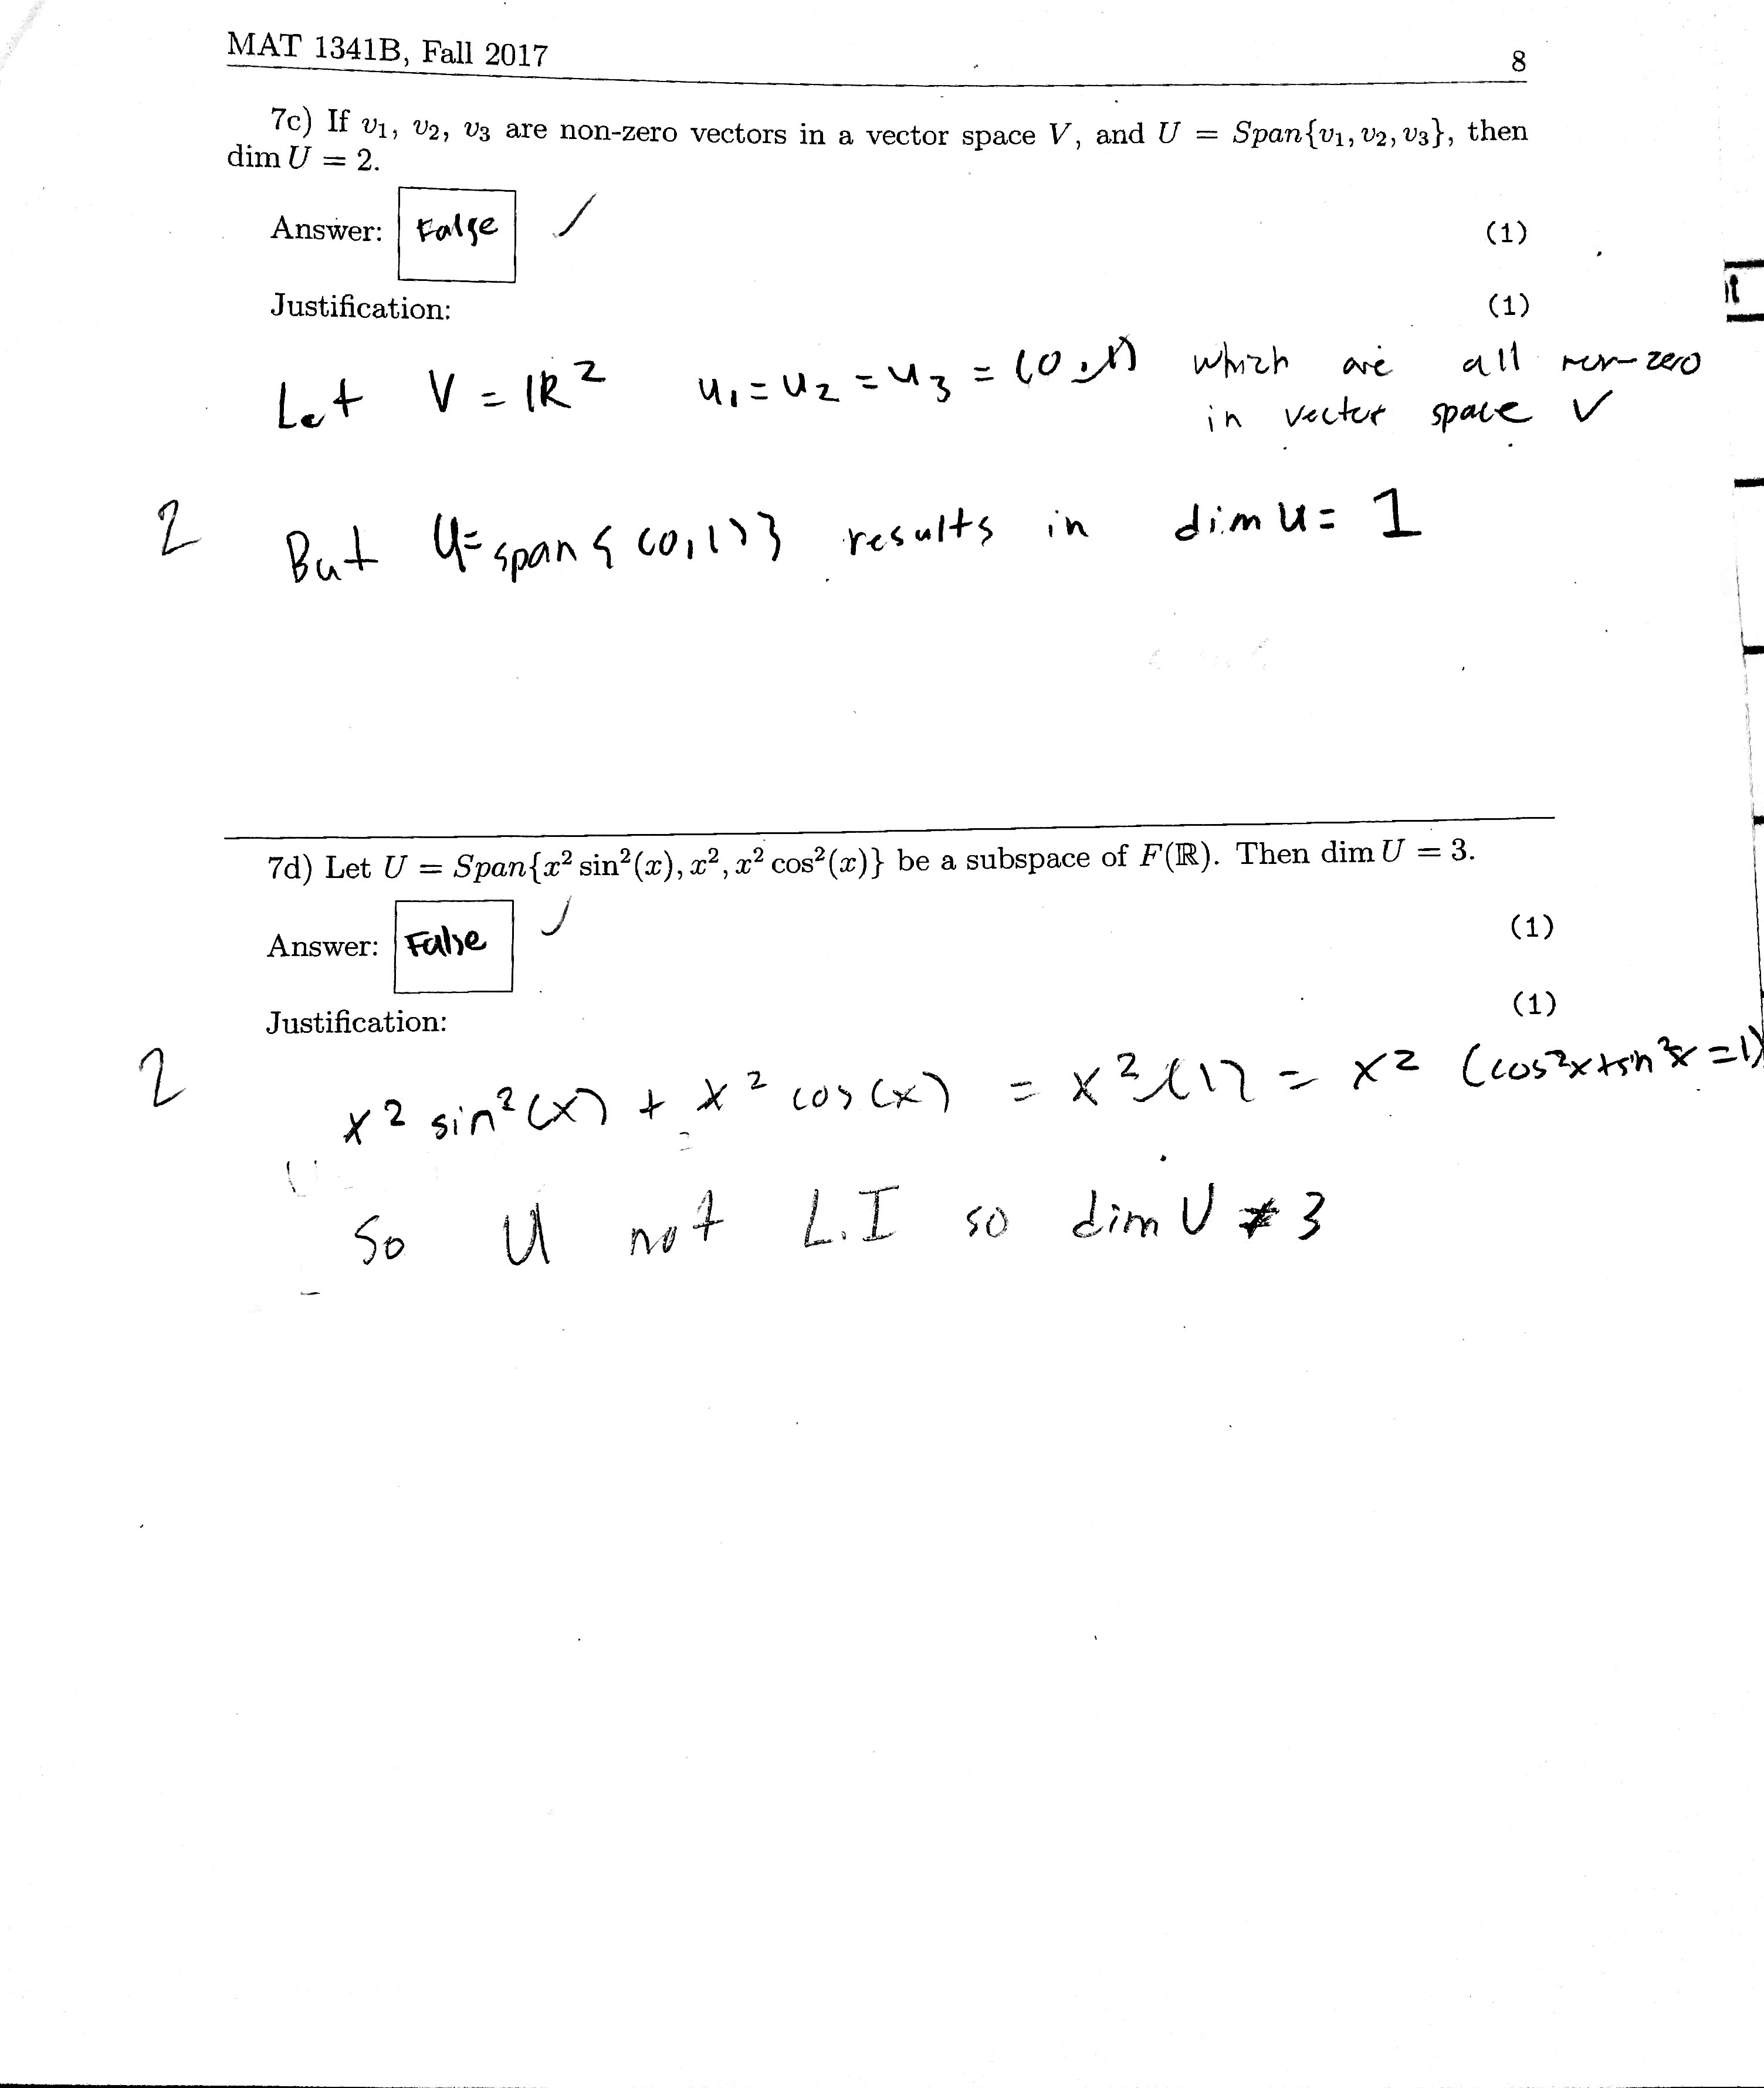 MAT 1341B, Fall 2017 8
7c) If v₁, v₂, v₃ are non-zero vectors in a vector space V, and U = Span{v₁, v₂, v₃}, then
dim U = 2.
Answer: False ✓ (1)
Justification: (1)
Let V = ℝ² u₁ = u₂ = u₃ = (0,1) which are all non-zero
in vector space ✓
2 But U = span{(0,1)} results in dim U = 1
7d) Let U = Span{x² sin²(x), x², x² cos²(x)} be a subspace of F(ℝ). Then dim U = 3.
Answer: False ✓ (1)
Justification: (1)
2 x² sin²(x) + x² cos(x) = x²(1) = x² (cos²x+sin²x=1)
So U not L.I so dim U ≠ 3